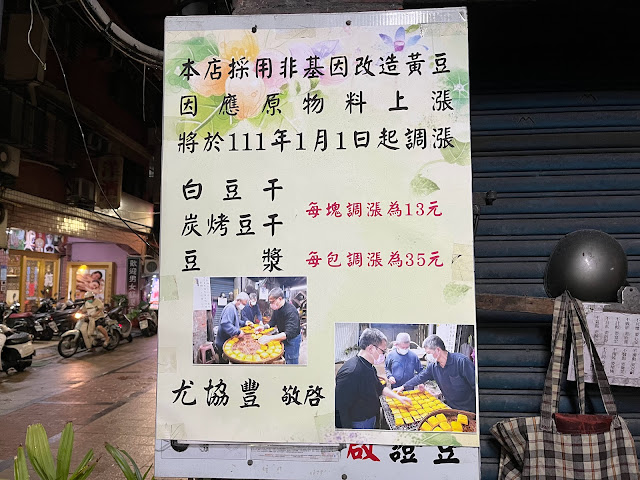 本店採用非基因改造黃豆
因應原物料上漲
將於111年1月1日起調漲
白豆干
炭烤豆干
每塊調漲為13元
豆漿
每包調漲為35元
尤協豐 敬啓
啟 證 豆
歡迎男女